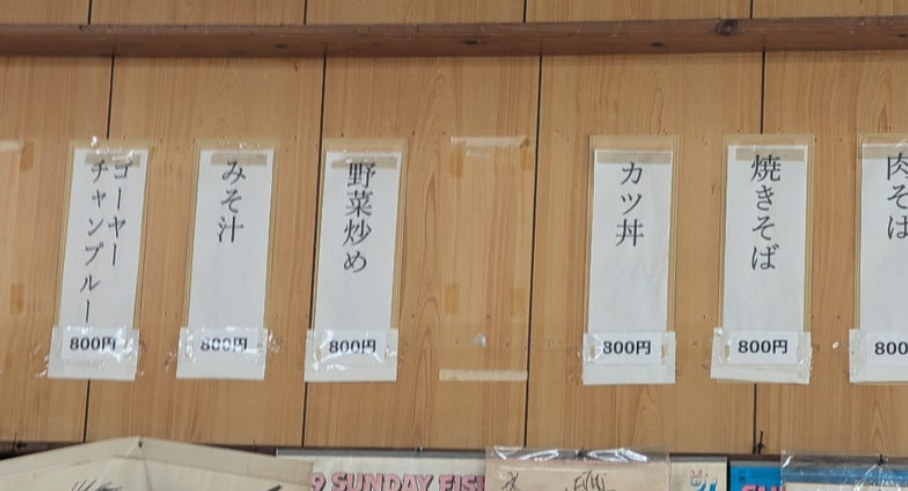 ゴーヤー
チャンプルー
800円
みそ汁
800円
野菜炒め
800円
カツ丼
800円
焼きそば
800円
肉そば
800
9 SUNDAY FISH